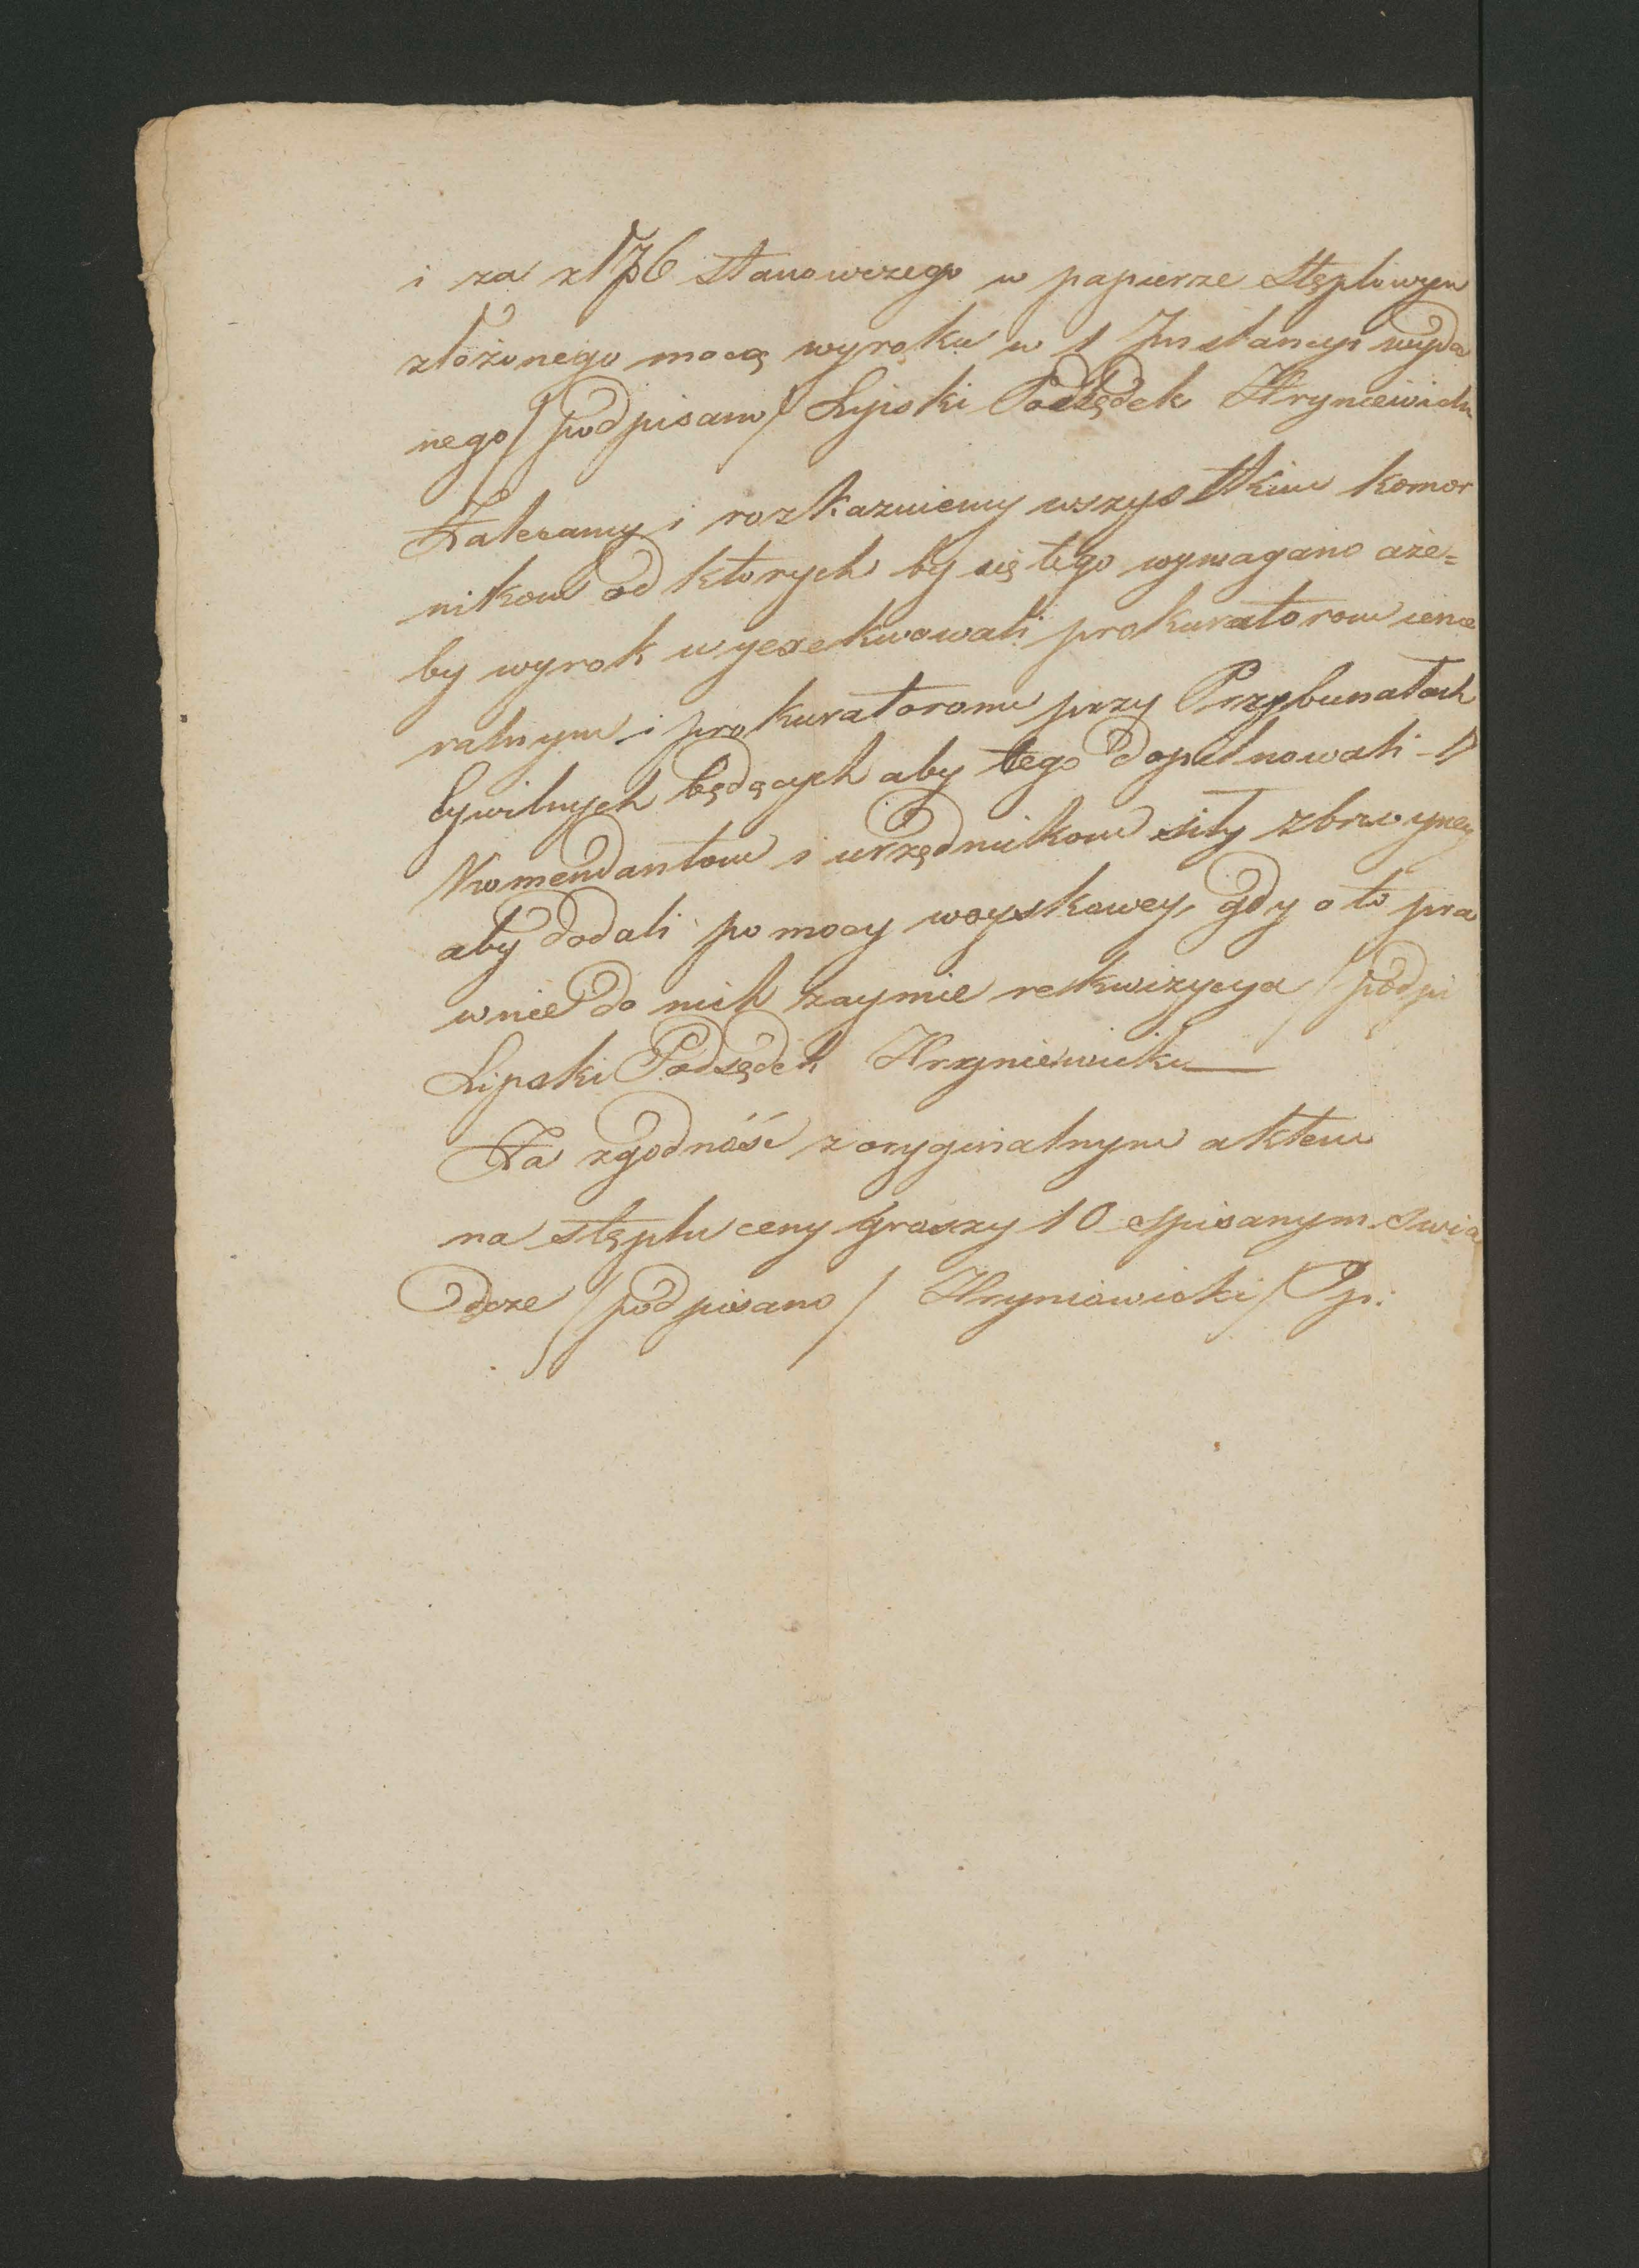 i za zł 76 stanowczego w papierze stęplowym
złożonego mocą wyroku w 1 Jnstancyi wyda
nego / podpisano / Lipski Podsędek Hryniewicki
Zalecamy i rozkazuiemy wszystkim komor
nikom od ktorych by się tego wymagano aże=
by wyrok wyexekwowali prokuratorom iene
ralnym i prokuratorom przy Przybunałach
Cywilnych będących aby tego dopilnowali
Komendantom i urzędnikom siły zbroyney
aby dodali pomocy woyskowey, gdy o to pra
wnie do nich zaymie rekwizycya / podpi
Lipski Podsędek Hryniewicki
Za zgodność z oryginalnym aktem
na stęplu ceny groszy 10 spisanym swia
dcze / podpisano / Hryniewicki / Pp: